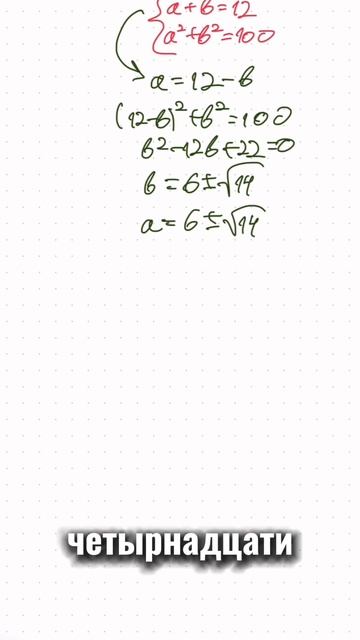 a + b = 12
a² + b² = 100
a = 12 - b
(12-b)² + b² = 100
b² - 12b + 22 = 0
b = 6 ± √14
a = 6 ± √14
четырнадцати